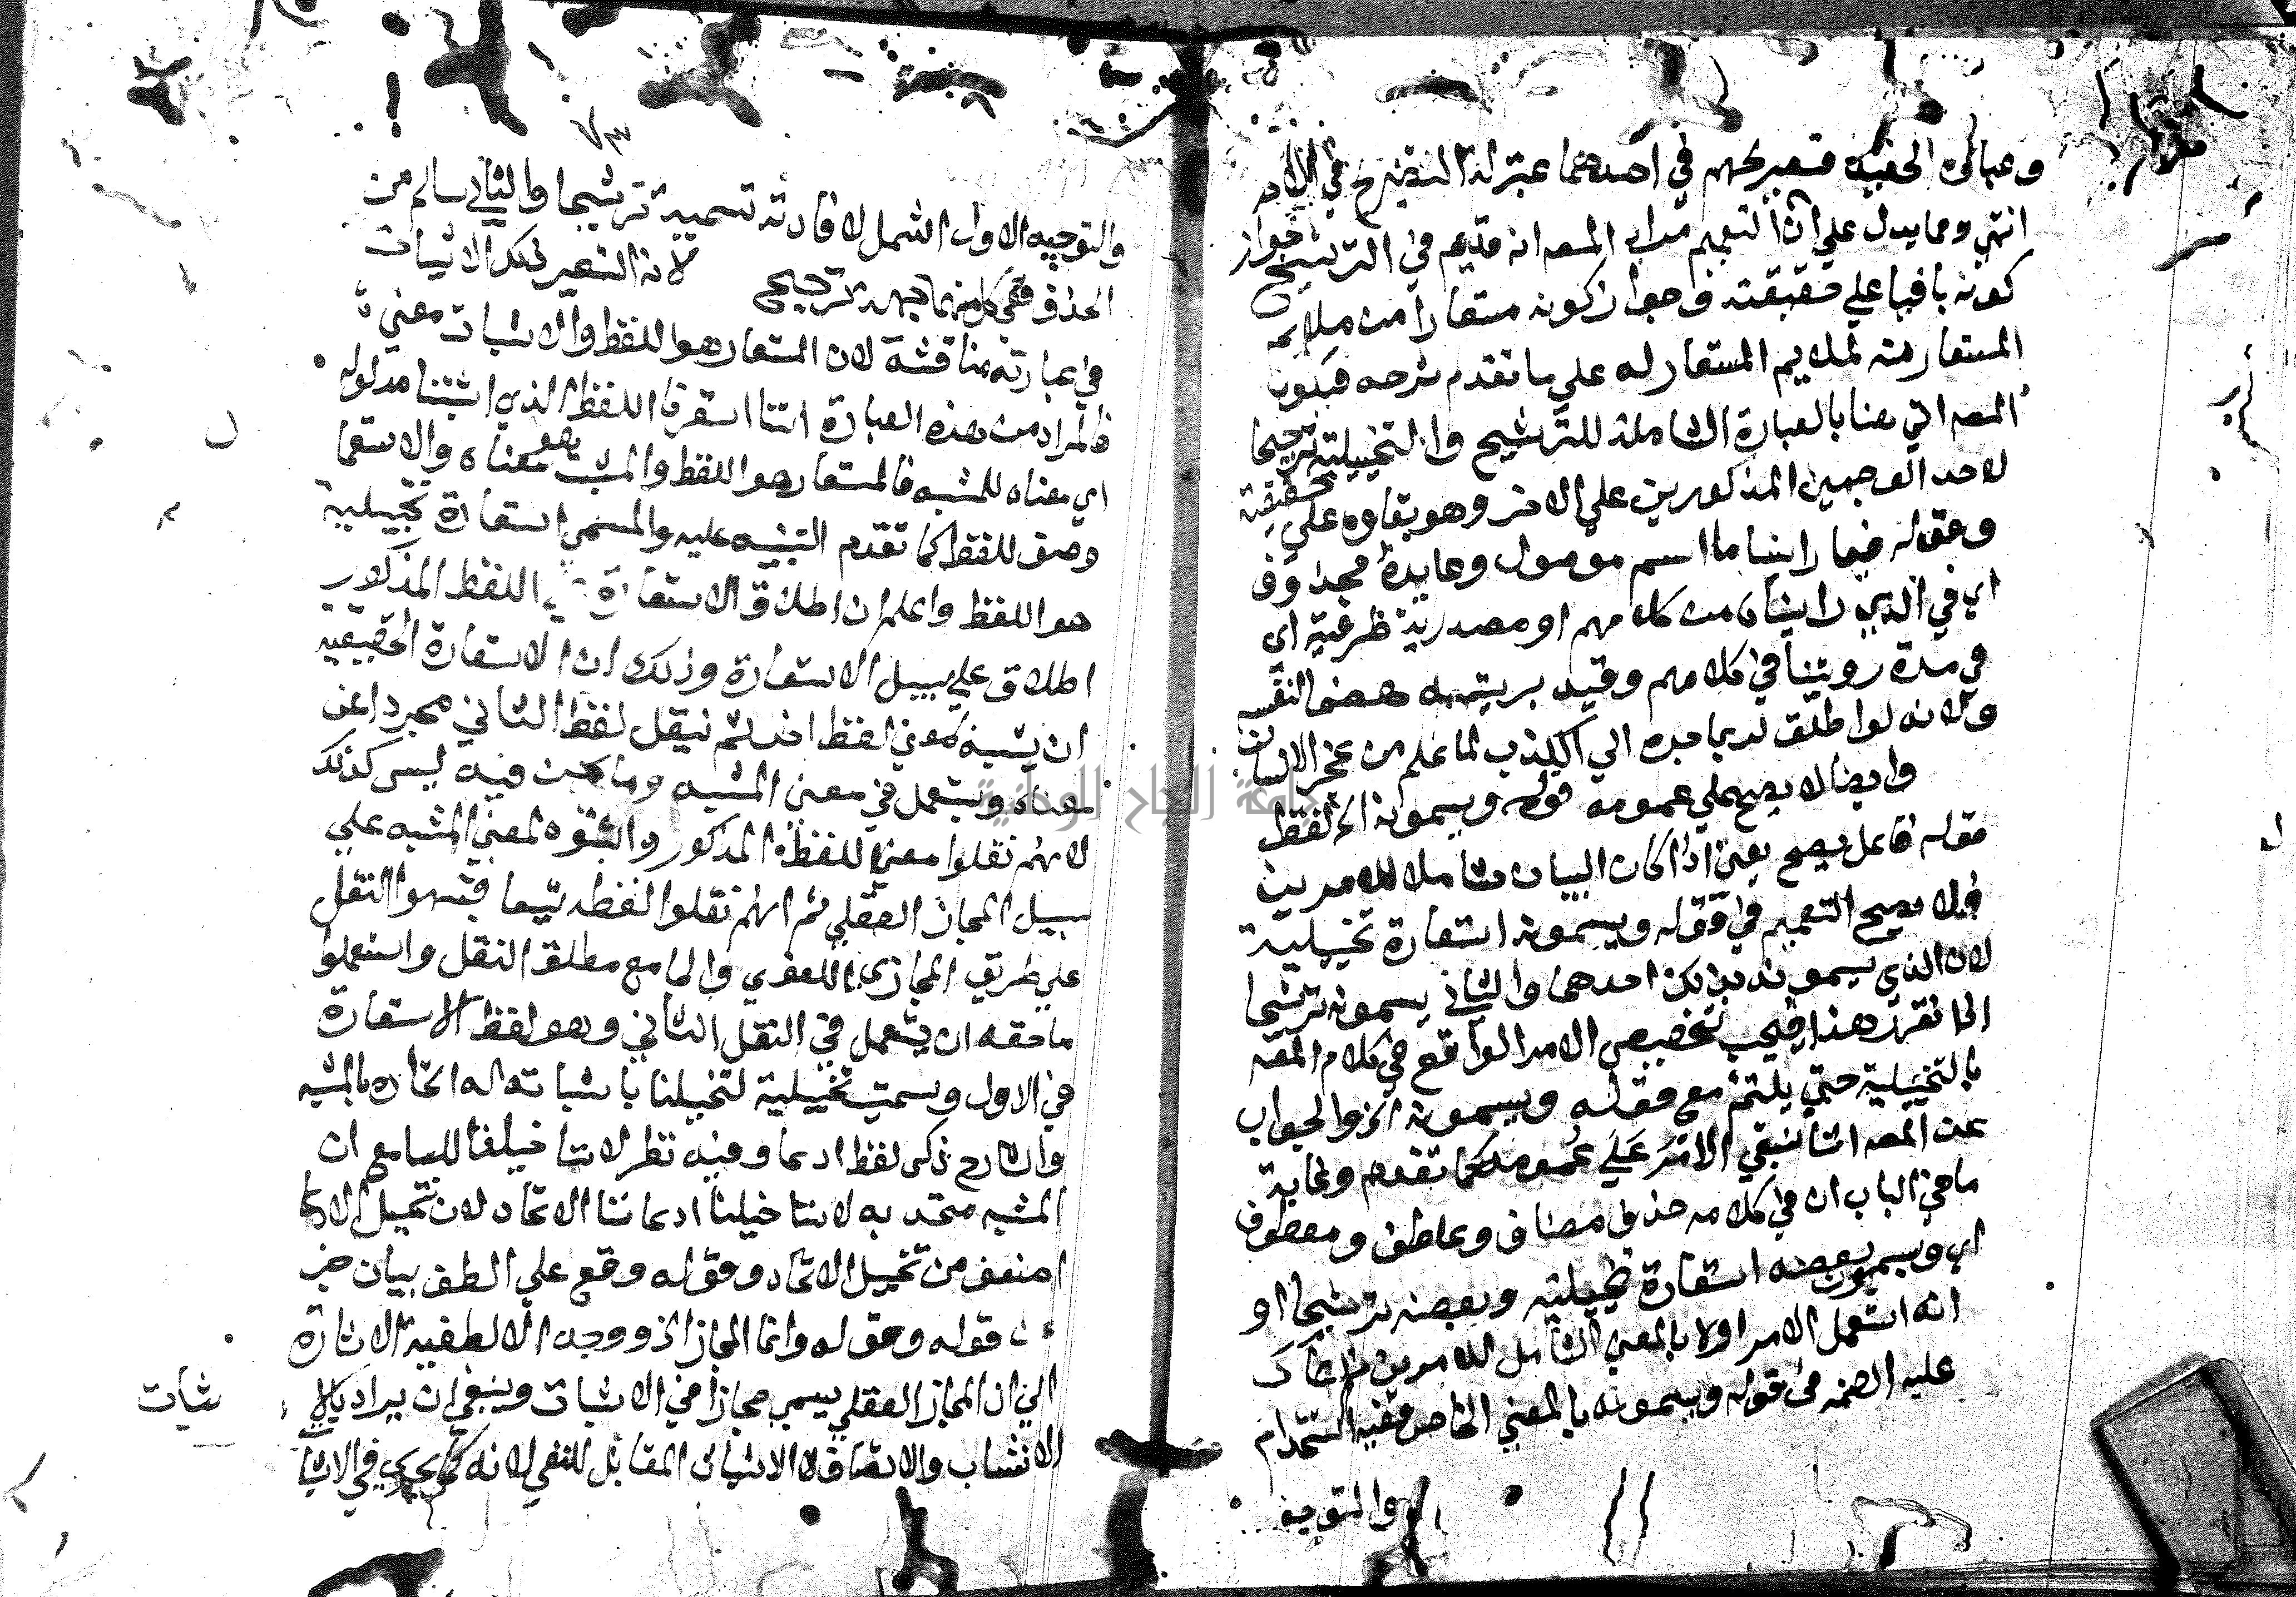 انتهي ومما يدل علي ان التعميم مراد المصه انه قدم في الترشيح جواز
كونه باقيا علي حقيقته وجواز كونه مستعارا من ملايم
المستعار منه لملايم المستعار له علي ما تقدم شرحه فيكون
المصه اتي هنا بالعبارة الشاملة للترشيح والتخييلية ترجيحا
لاحد الوجهين المذكورين علي الاخر وهو بقاوه علي حقيقته
وقوله فيما راينا ما اسم موصول وعايده محذوف
اي في الذي رايناه من كلامهم او مصدرية ظرفية اي
في مدة رويتنا في كلامهم وقيد برويته هضما لنفسه
ولانه لو اطلق لربما جره الي الكذب لما علم من عجز الانسان
وايضا لا يصح علي عمومه قوله ويسمونه الخ لفظ
قوله فاعل يصح يعني اذا كان البيان شاملا للامرين
فلا يصح التعميم في قوله ويسمونه استعارة تخييلية
لان الذي يسمونه بذلك احدهما والثاني يسمونه ترشيحا
اذا تقرر هذا فيجب تخصيص الامر الواقع في كلام المصه
بالتخييلية حتي يلتئم مع قوله ويسمونه الخ والجواب
عن المصه اننا نبقي الامر علي عمومه كما تقدم وغاية
ما في الباب ان في كلامه حذف مضاف وعاطف ومعطوف
اي ويسمون بعضه استعارة تخييلية وبعضه ترشيحا او
انه استعمل الامر اولا بالمعني الشامل للامرين
عليه الضمير في قوله ويسمونه بالمعني الخاص ففيه استخدام
والتوجيه
والتوجيه الاول اشمل لافادته تسمية ترشيحا والثاني سالم من
الحذف ففي كل منهما جهة ترجيح لانه التعبير بذلك الاثبات
في عبارته مناقشة لان المستعار هو اللفظ والاثبات معني
فالمراد من هذه العبارة اننا استعرنا اللفظ الذي اثبتنا مدلوله
اي معناه للمشبه فالمستعار هو اللفظ والمثبت هو معناه والاستعا
وصف للفظ كما تقدم التنبيه عليه والمسمي استعارة تخييلية
هو اللفظ واعلم ان اطلاق الاستعارة اللفظ المذكور
اطلاق علي سبيل الاستعارة وذلك ان الاستعارة الحقيقية
ان يشبه معني لفظ اخر ثم ينقل لفظ الثاني مجردا عن
معناه ويستعمل في معني المشبه وما نحن فيه ليس كذلك
لانهم نقلوا معني اللفظ المذكور واثبتوه لمعني المشبه علي
سبيل المجاز العقلي ثم انهم نقلوا لفظه فشبهوا النقل
علي طريق المجازي اللغوي والجامع مطلق النقل واستعملوا
ما حقه ان يستعمل في النقل الثاني وهو لفظ الاستعارة
في الاول وسميت تخييلية لتخييلنا باثباته له اتحاده بالمشبه
والشارح ذكر لفظ ادعا وفيه نظر لاننا خيلنا للسامع ان
المشبه متحد به لاننا خيلنا ادعائنا الاتحاد لان تخييل الادعا
اضعف من تخييل الاتحاد وقوله وقع علي الطف بيان
قوله وقوله وانما المجاز الخ ووجه الالطفية الاشارة
الي ان المجاز العقلي يسمي مجازا في الاثبات وينبغي ان يراد بالا
ثبات
الانتساب والاتصاف لا الاثبات المقابل للنفي لانه كما يجري في الاثبا